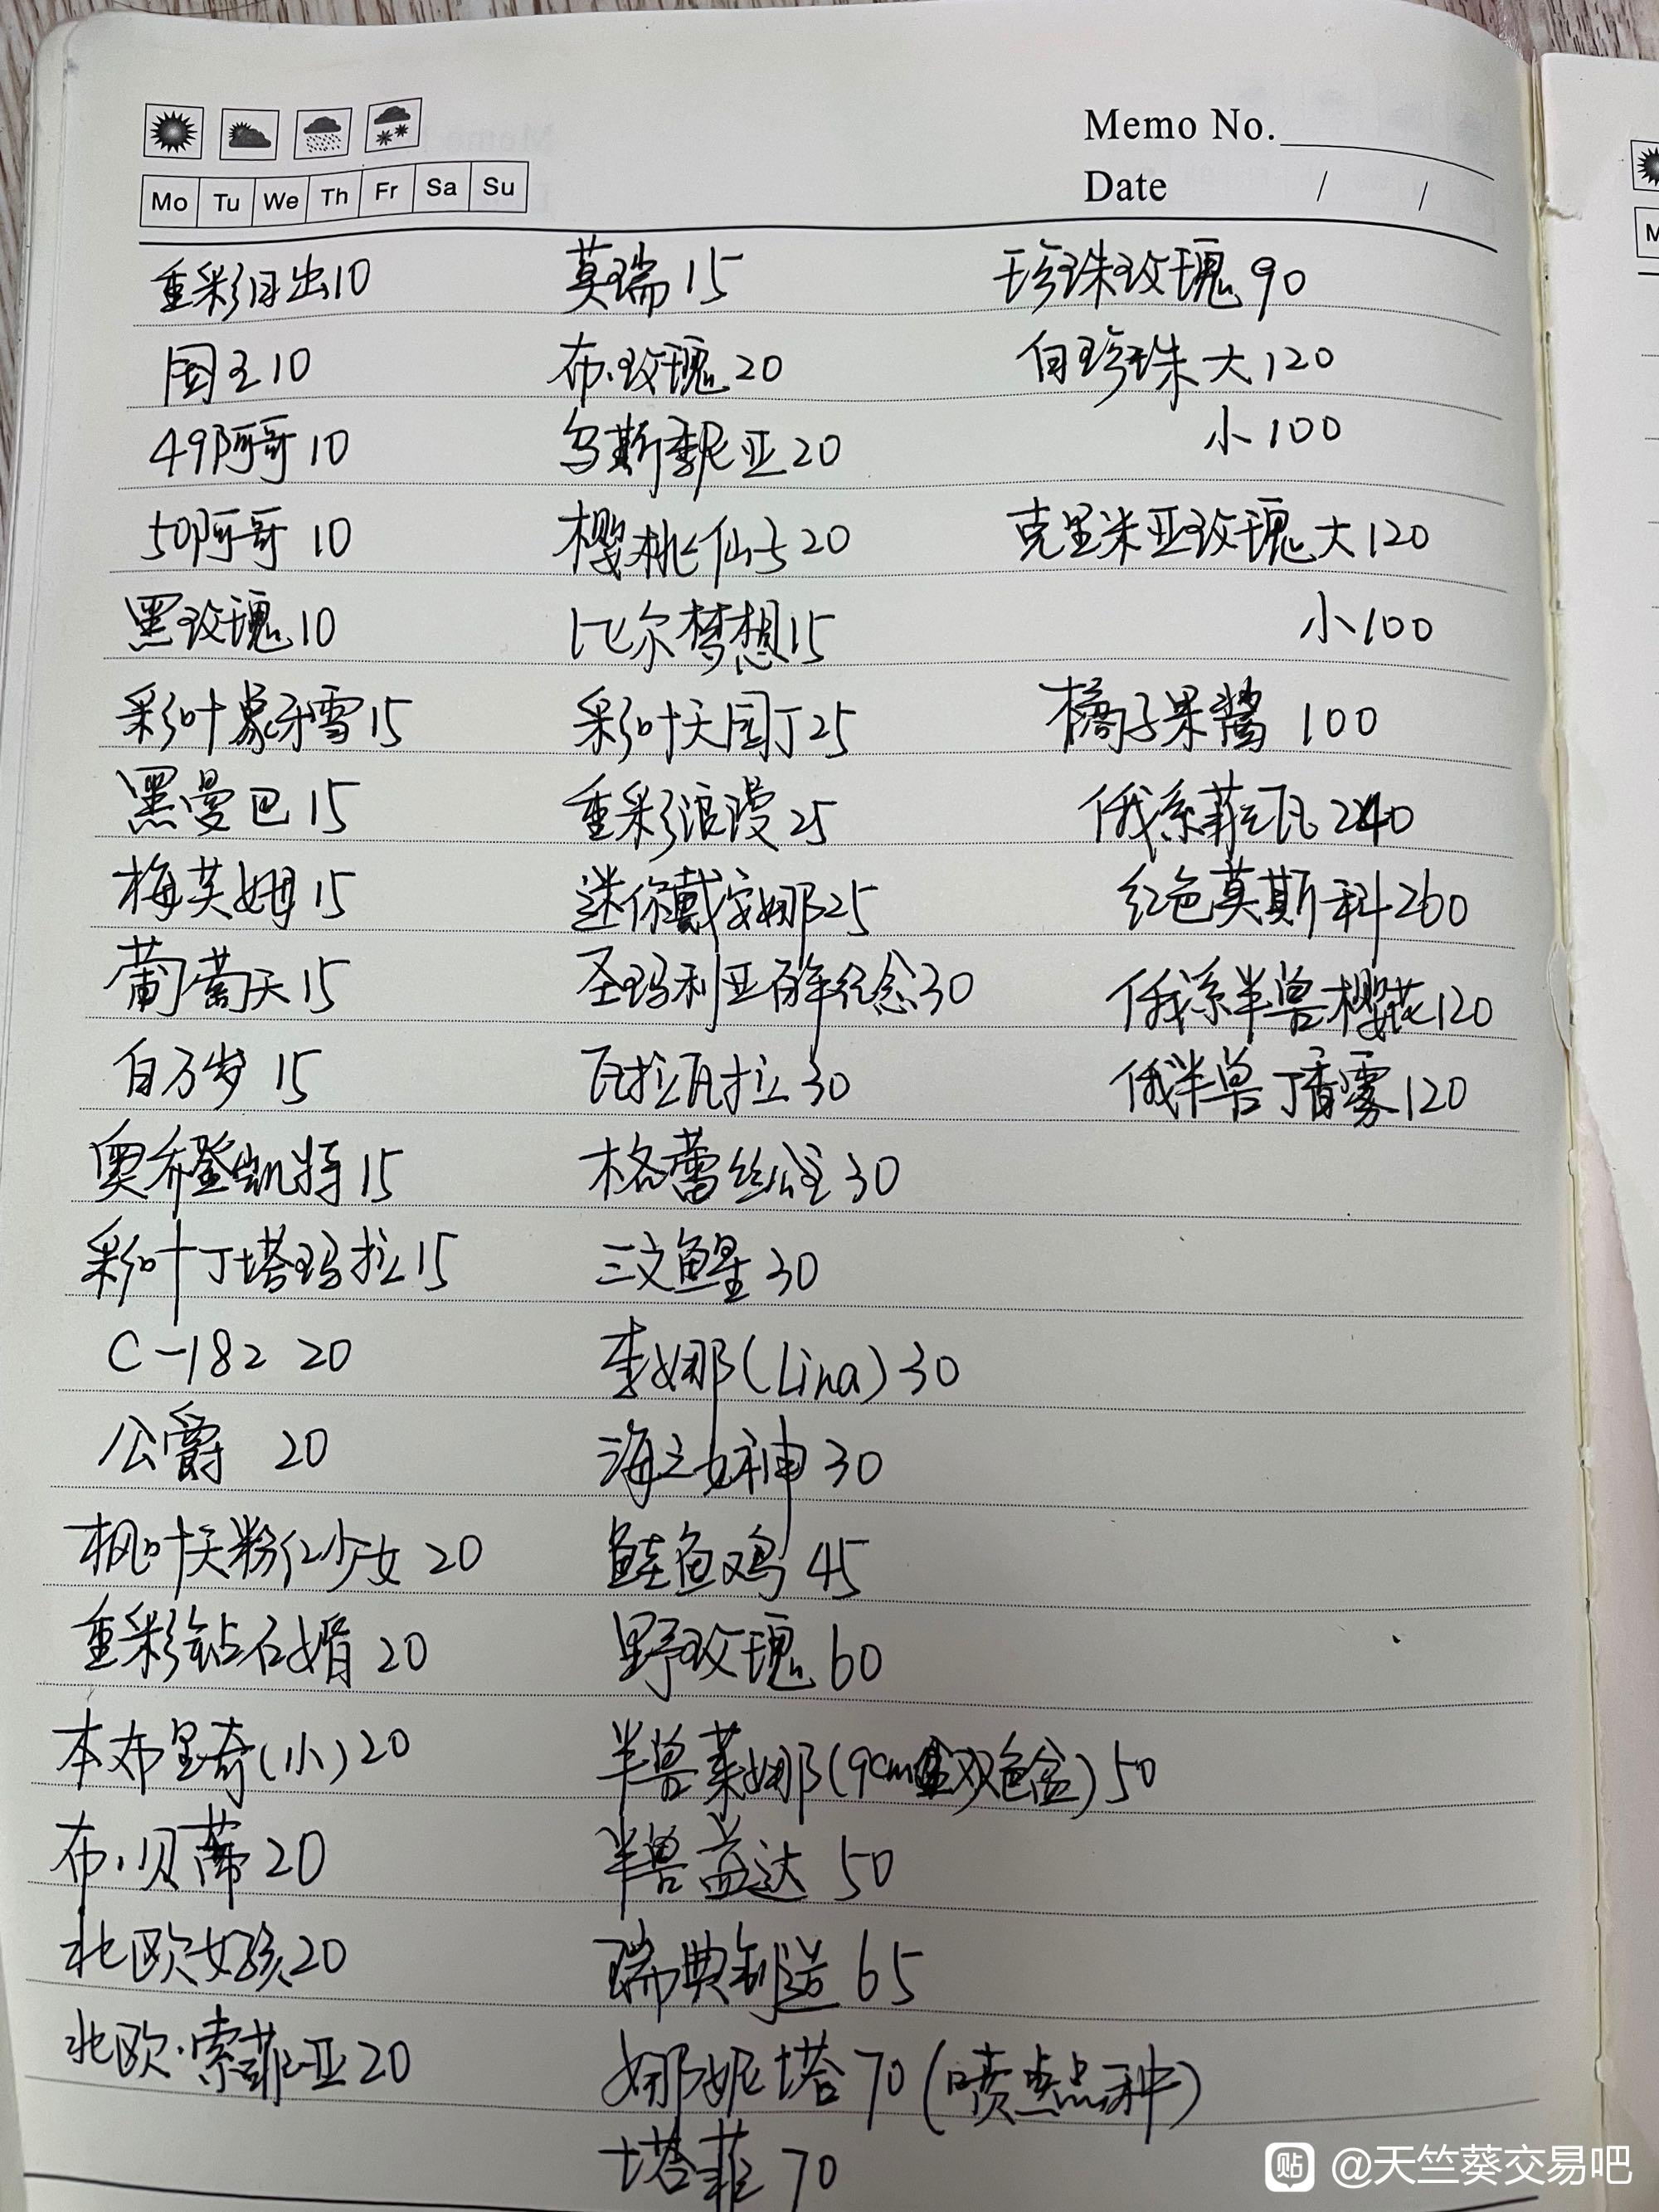 Memo No.
Date / /
Mo Tu We Th Fr Sa Su
重彩日出10
国王10
49阿哥10
50阿哥 10
黑玫瑰10
彩叶象牙雪15
黑曼巴15
梅芙姆15
葡萄天15
白万岁 15
奥希登凯特15
彩叶丁塔玛拉15
C-182 20
公爵 20
枫叶天粉红少女 20
重彩钻石婚 20
本布里奇(小)20
布·贝蒂20
北欧女孩20
北欧·索菲亚20
莫瑞15
布·玫瑰20
乌斯季尼亚20
樱桃仙子20
比尔梦想15
彩叶天园丁25
重彩浪漫25
迷你戴安娜25
圣玛利亚百年纪念30
瓦拉瓦拉30
格蕾丝公主30
三文鱼星30
李娜(Lina)30
海之女神30
鲑鱼鸡45
野玫瑰60
半兽莱娜(9cm双色盆)50
半兽益达 50
瑞典制造65
娜妮塔70(喷点品种)
塔菲 70
珍珠玫瑰90
白珍珠大120
小100
克里米亚玫瑰大120
小100
橘子果酱 100
俄系菲瓦240
红色莫斯科260
俄系半兽樱花120
俄半兽丁香雾120
M
贴 @天竺葵交易吧